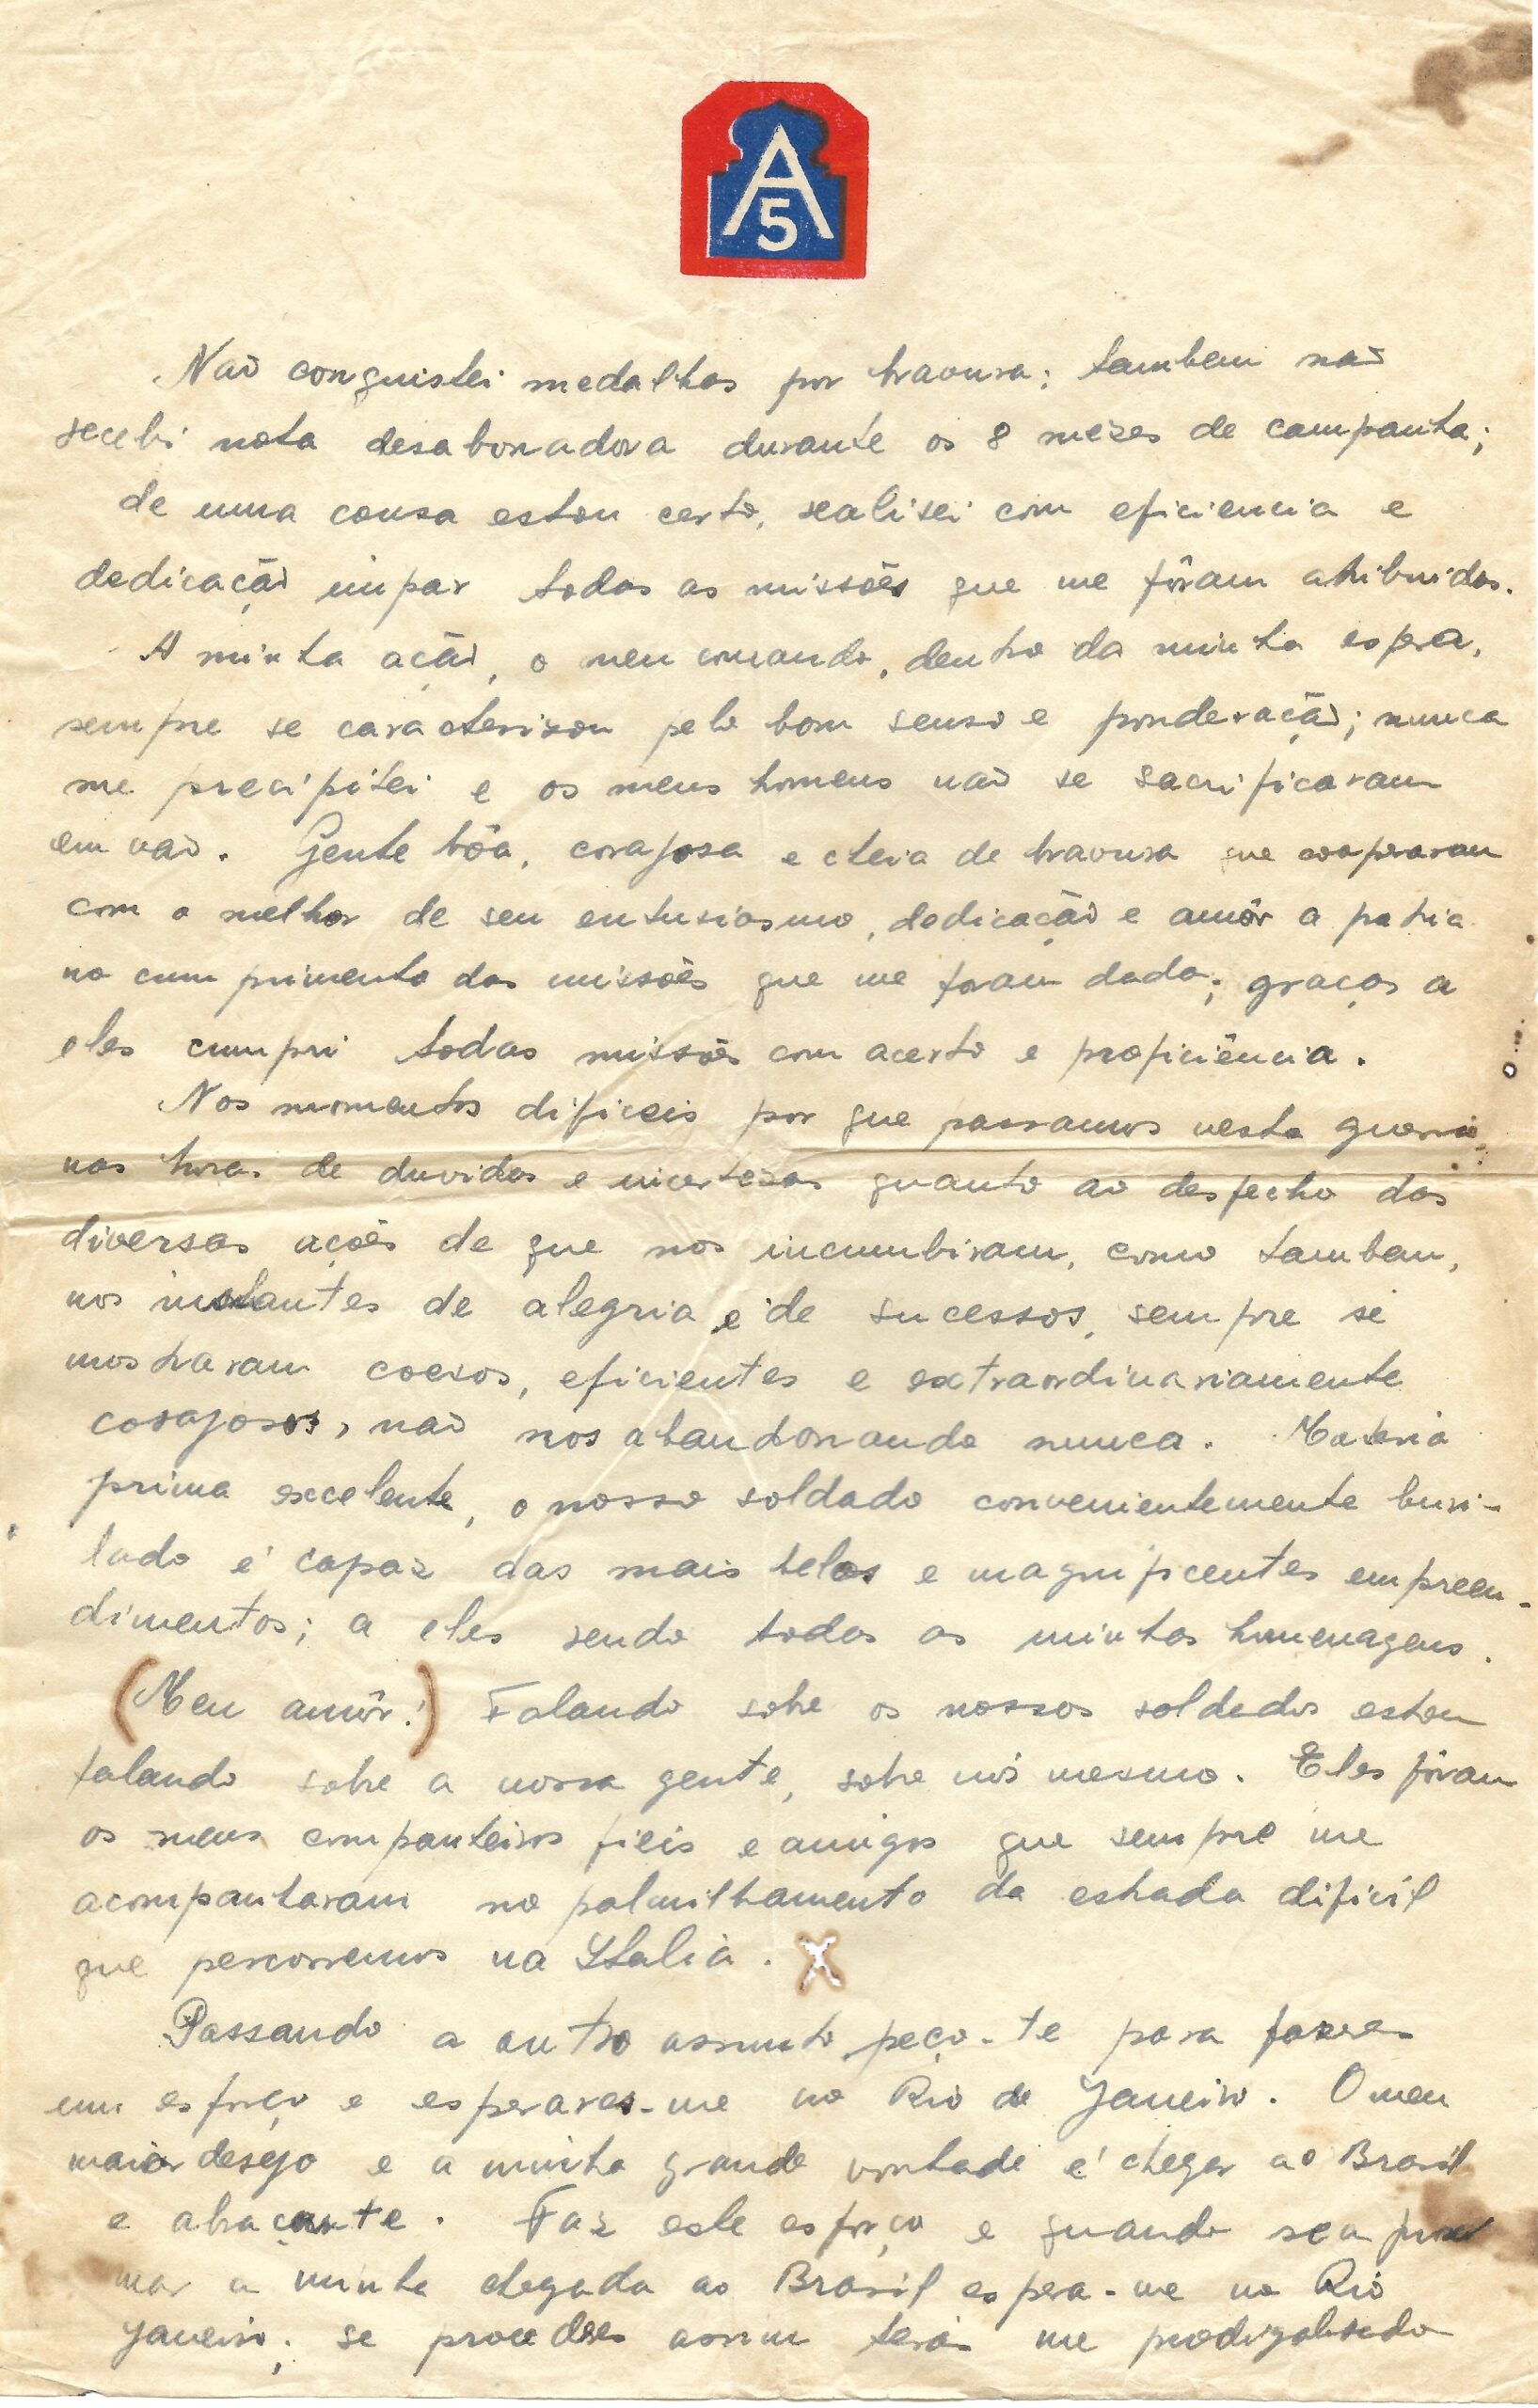 A
5
Não conquistei medalhas por bravura; tambem não
recebi nota desabonadora durante os 8 mezes de campanha;
de uma cousa estou certo, realisei com eficiencia e
dedicação impar todas as missões que me fôram atribuidas.
A minha ação, o meu comando, dentro da minha esfera,
sempre se caracterisou pelo bom senso e ponderação; nunca
me precipitei e os meus homens não se sacrificaram
em vão. Gente bôa, corajosa e cheia de bravura que cooperaram
com o melhor de seu entusiasmo, dedicação e amôr a patria
no cumprimento das missões que me foram dada; graças a
eles cumpri todas missões com acerto e proficiência.
Nos momentos dificeis por que passamos nesta guerra
nas horas de duvidas e incertezas quanto ao desfecho das
diversas ações de que nos incumbiram, como tambem,
nos instantes de alegria e de sucessos, sempre se
mostraram coesos, eficientes e extraordinariamente
corajosos, não nos abandonando nunca. Materia
prima excelente, o nosso soldado convenientemente buri-
lado é capaz das mais belas e magnificentes empreen-
dimentos; a eles rendo todas as minhas homenagens.
(Meu amôr!) Falando sobre os nossos soldados estou
falando sobre a nossa gente, sobre nós mesmo. Eles fôram
os meus companheiros fieis e amigos que sempre me
acompanharam no palmilhamento da estrada dificil
que percorremos na Italia. X
Passando a outro assunto peço-te para fazeres
um esforço e esperares-me no Rio de Janeiro. O meu
maior desejo e a minha grande vontade é chegar ao Brasil
e abraçar-te. Faz este esforço e quando se aproxi
mar a minha chegada ao Brasil espera-me no Rio
Janeiro; se procederes assim terás me prodigalisado